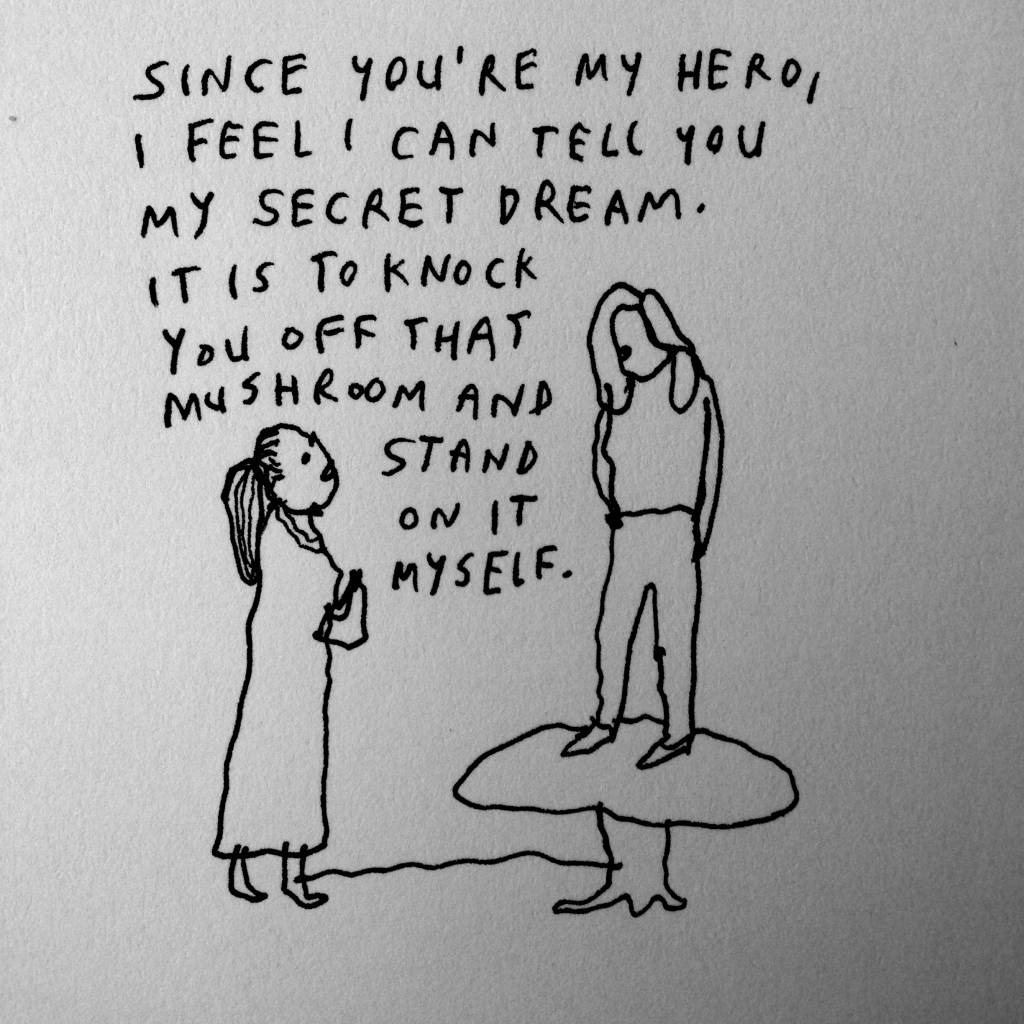 SINCE YOU'RE MY HERO,
I FEEL I CAN TELL YOU
MY SECRET DREAM.
IT IS TO KNOCK
YOU OFF THAT
MUSHROOM AND
STAND
ON IT
MYSELF.